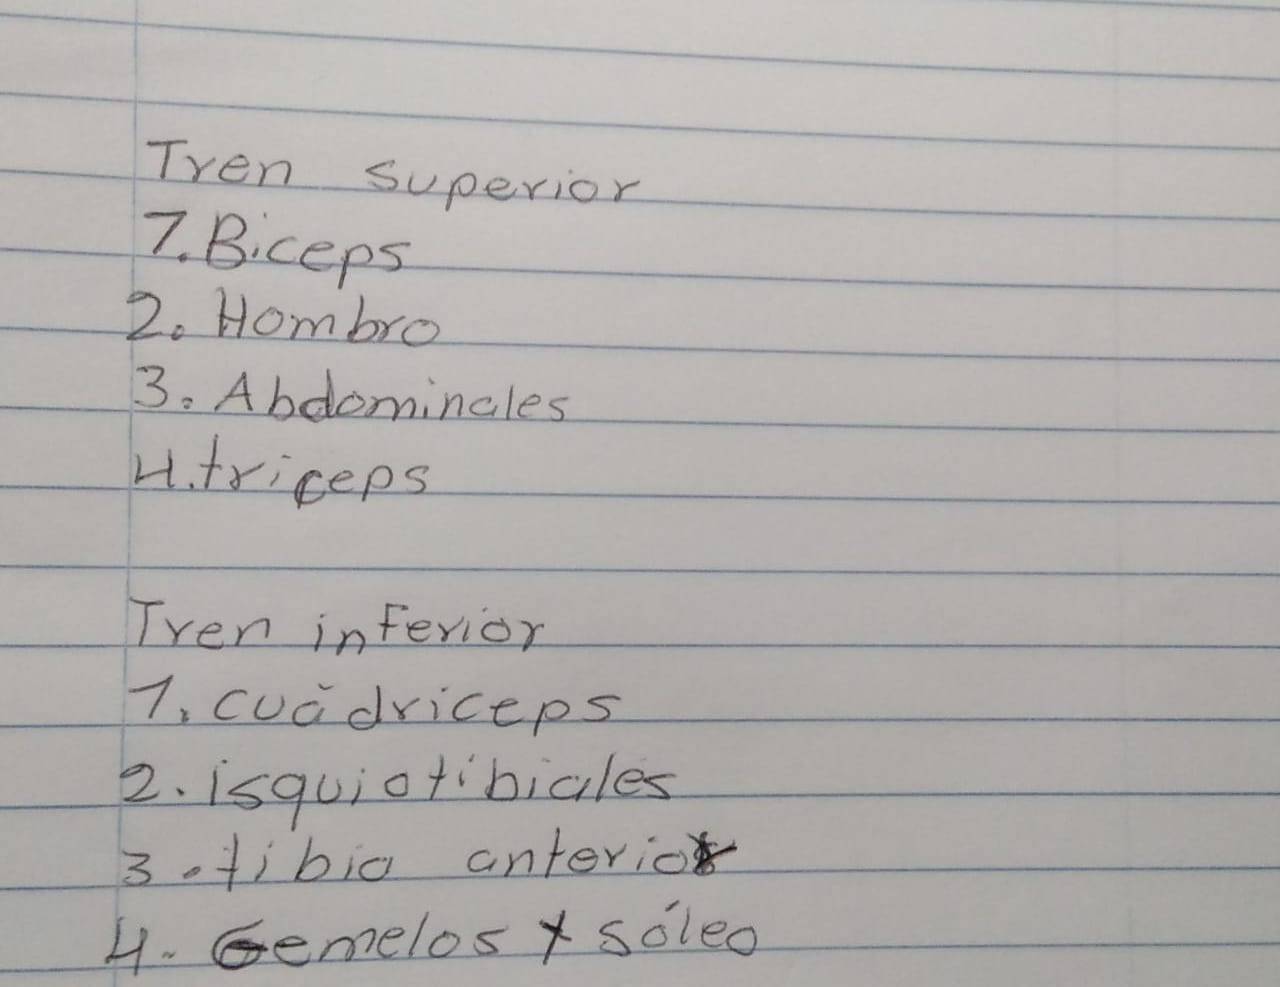 Tren superior
1. Biceps
2. Hombro
3. Abdominales
4. triceps
Tren inferior
1. cuádriceps
2. isquiotibiales
3. tibia anterior
4. Gemelos y sóleo